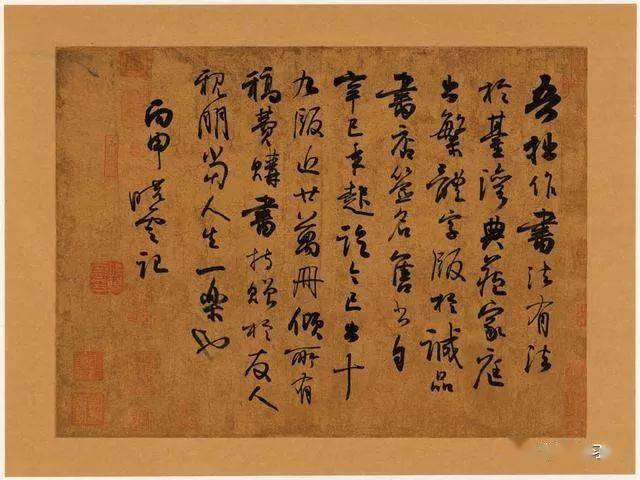 吾拙作書法有法
於臺灣典藏家庭
出繁體字版於誠品
書店簽名售書自
辛巳年起訖今已出十
九版近廿萬冊傾所有
稿費購書持贈於友人
親朋當人生一樂也
丙申 曉雲記